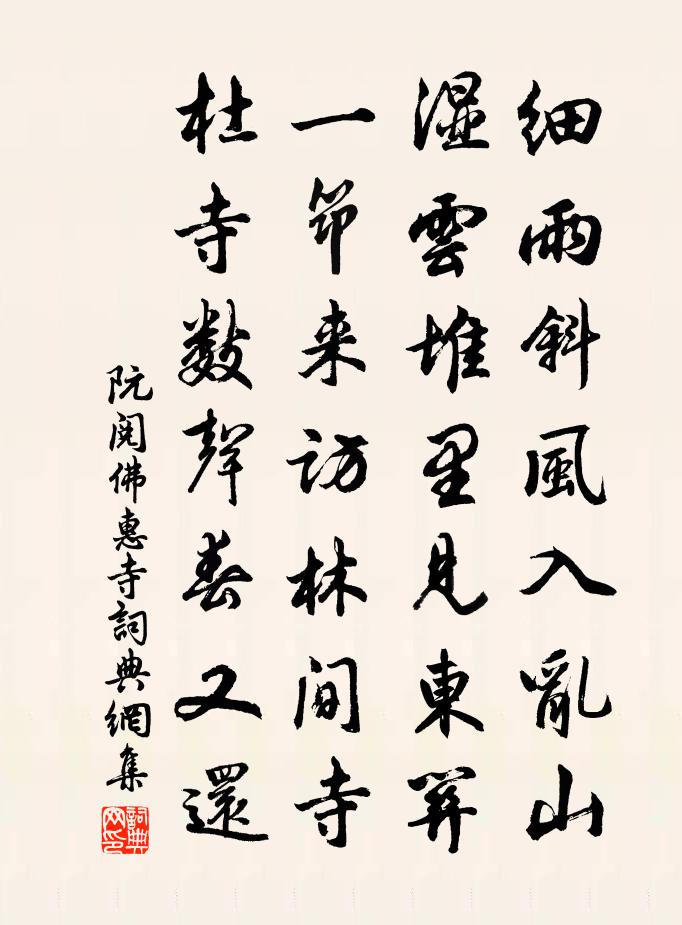 細雨斜風入亂山
濕雲堆里見東關
一筇来訪林間寺
杜寺數聲春又還
阮閱佛惠寺詞典網集
詞典
网印